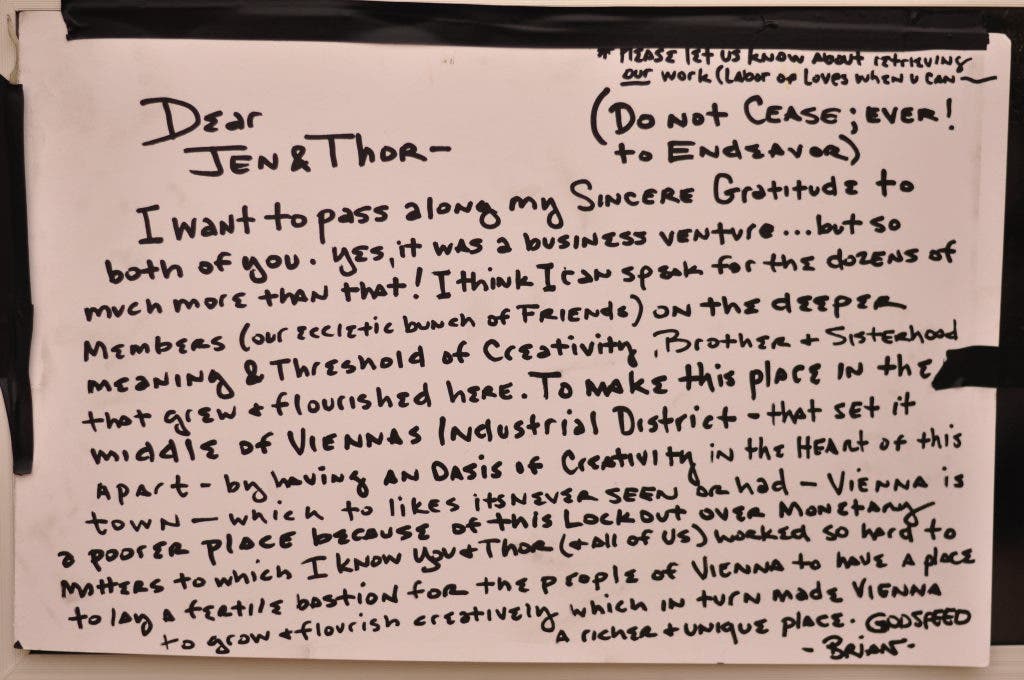 * PLEASE LET US KNOW ABOUT retrieving
our work (Labor of Loves when u can ~
Dear
JEN & Thor -
(Do not CEASE; EVER!
to ENDEAVOR)
I want to pass along my SINCERE Gratitude to
both of you. Yes, it was a business venture...but so
much more than that! I think I can speak for the dozens of
Members (our eccletic bunch of FRIENDS) on the deeper
meaning & Threshold of Creativity, Brother + Sisterhood
that grew + flourished here. To make this place in the
middle of VIENNAS Industrial District - that set it
Apart - by having AN OASIS of Creativity in the HEART of this
town - which to likes its NEVER SEEN or had - VIENNA is
a poorer place because of this Lockout over Monetary
Matters to which I know You + Thor (+ all of us) worked so hard to
to lay a fertile bastion for the people of VIENNA to have a place
to grow + flourish creatively which in turn made VIENNA
a richer + unique place. GODSPEED
- BRIAN -